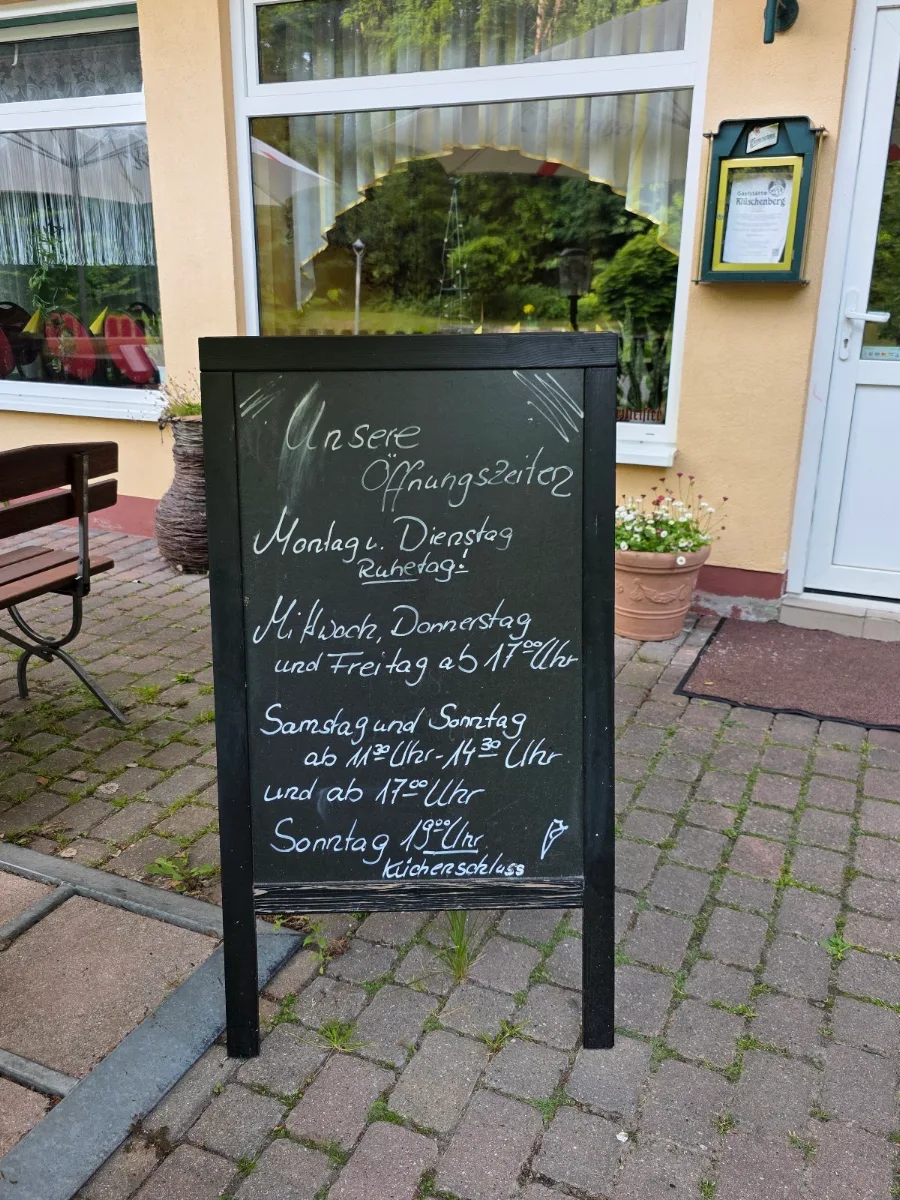 Gaststätte
Klüschenberg
Unsere
Öffnungszeiten
Montag u. Dienstag
Ruhetag!
Mittwoch, Donnerstag
und Freitag ab 17⁰⁰ Uhr
Samstag und Sonntag
ab 11³⁰ Uhr - 14³⁰ Uhr
und ab 17⁰⁰ Uhr
Sonntag 19⁰⁰ Uhr
Küchenschluss